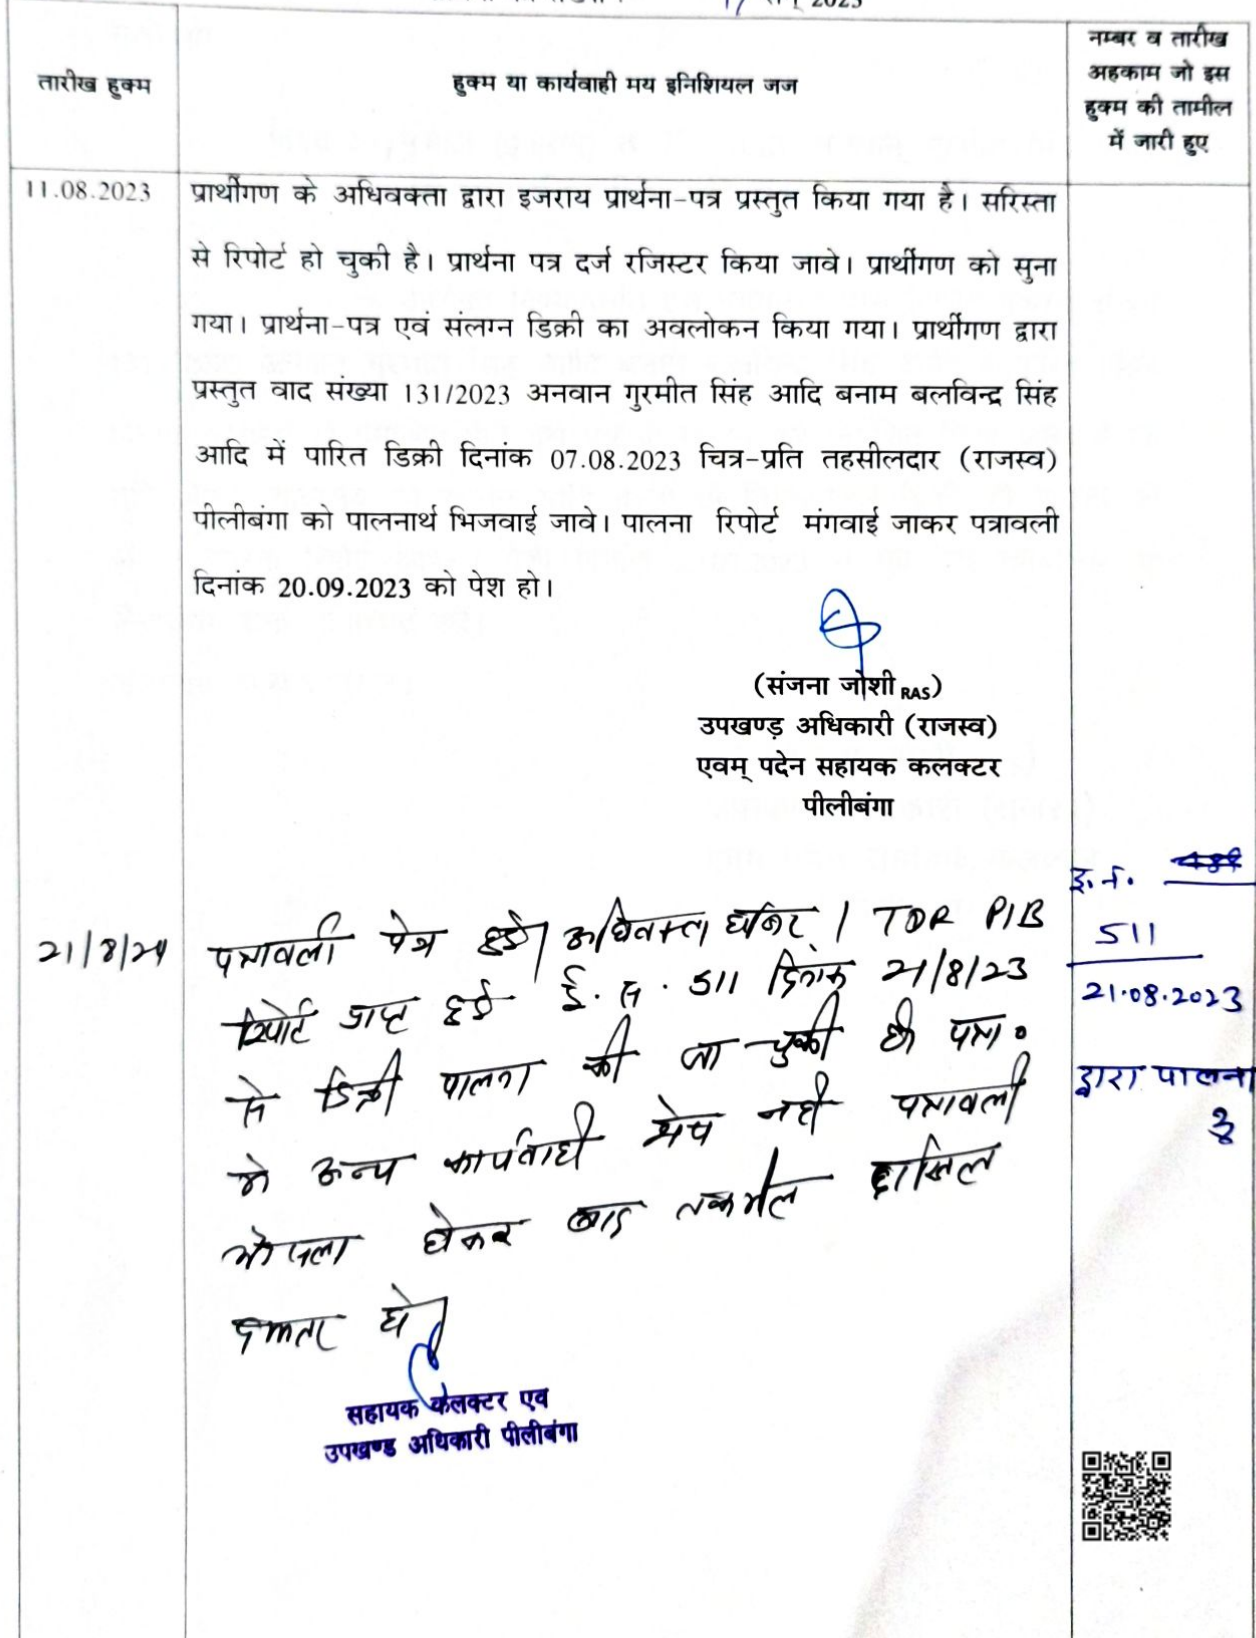 2023
तारीख हुक्म
हुक्म या कार्यवाही मय इनिशियल जज
नम्बर व तारीख
अहकाम जो इस
हुक्म की तामील
में जारी हुए
11.08.2023
प्रार्थीगण के अधिवक्ता द्वारा इजराय प्रार्थना-पत्र प्रस्तुत किया गया है। सरिस्ता
से रिपोर्ट हो चुकी है। प्रार्थना पत्र दर्ज रजिस्टर किया जावे। प्रार्थीगण को सुना
गया। प्रार्थना-पत्र एवं संलग्न डिक्री का अवलोकन किया गया। प्रार्थीगण द्वारा
प्रस्तुत वाद संख्या 131/2023 अनवान गुरमीत सिंह आदि बनाम बलविन्द्र सिंह
आदि में पारित डिक्री दिनांक 07.08.2023 चित्र-प्रति तहसीलदार (राजस्व)
पीलीबंगा को पालनार्थ भिजवाई जावे। पालना रिपोर्ट मंगवाई जाकर पत्रावली
दिनांक 20.09.2023 को पेश हो।
(संजना जोशी RAS)
उपखण्ड़ अधिकारी (राजस्व)
एवम् पदेन सहायक कलक्टर
पीलीबंगा
21/8/24
पत्रावली पेश हुई। अधिवक्ता हाजिर। TDR PIB
रिपोर्ट प्राप्त हुई ई. स. 511 दिनांक 21/8/23
से डिक्री पालना की जा चुकी है। पत्रा०
मे अन्य कार्यवाही शेष नही पत्रावली
फैसला होकर बाद तकमील दाखिल
दफ्तर हो।
सहायक कलक्टर एव
उपखण्ड अधिकारी पीलीबंगा
इ.न.
511
21.08.2023
द्वारा पालना